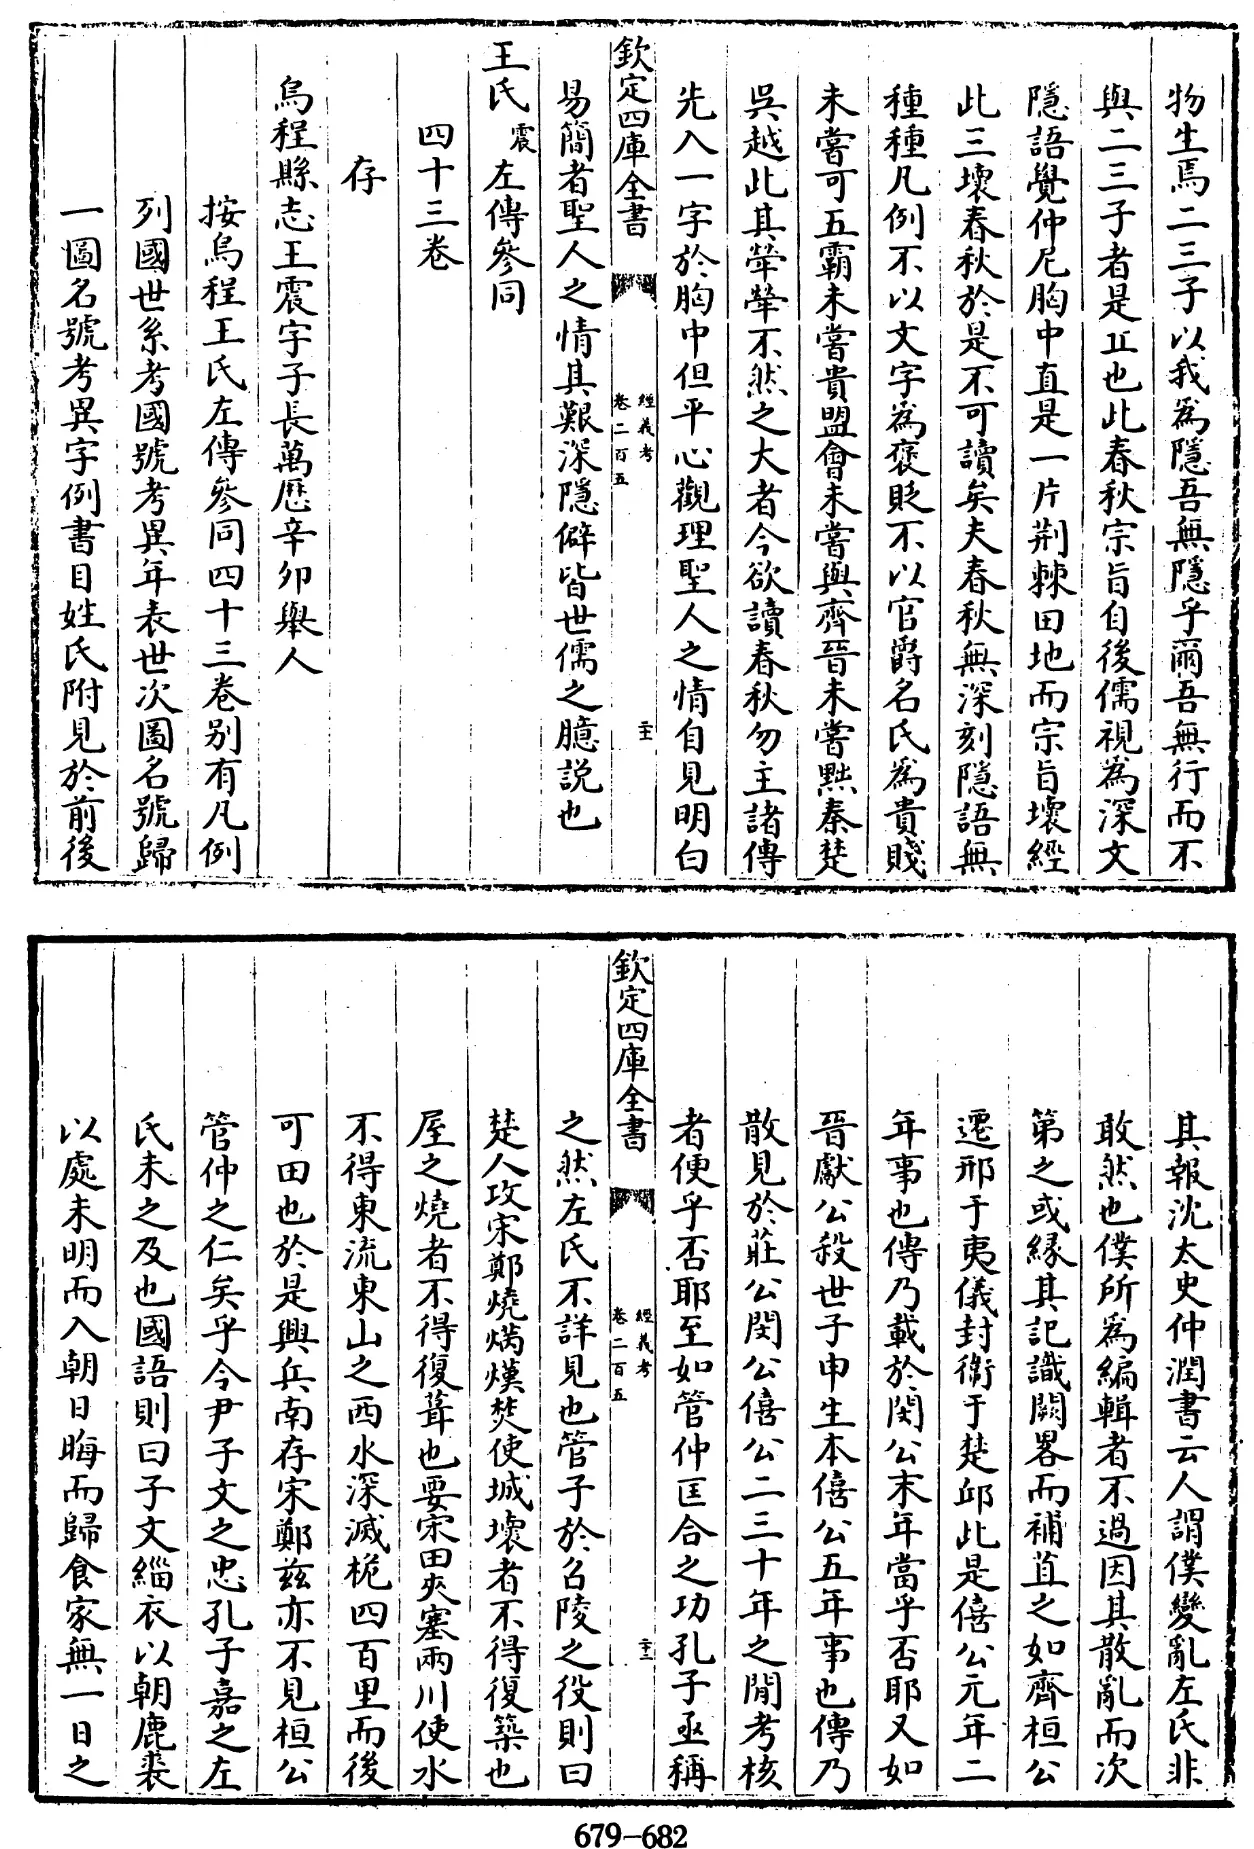 物生焉二三子以我為隱吾無隱乎爾吾無行而不
與二三子者是丘也此春秋宗旨自後儒視為深文
隱語覺仲尼胸中直是一片荆棘田地而宗旨壞經
此三壞春秋於是不可讀矣夫春秋無深刻隱語無
種種凡例不以文字為褒貶不以官爵名氏為貴賤
未嘗可五霸未嘗貴盟會未嘗與齊晉未嘗黜秦楚
吳越此其犖犖不然之大者今欲讀春秋勿主諸傳
先入一字於胸中但平心觀理聖人之情自見明白
欽定四庫全書
經義考
卷二百五
二十一
易簡者聖人之情其艱深隱僻皆世儒之臆説也
王氏震左傳參同
四十三卷
存
烏程縣志王震字子長萬厯辛卯舉人
按烏程王氏左傳參同四十三卷别有凡例
列國世系考國號考異年表世次圖名號歸
一圖名號考異字例書目姓氏附見於前後
其報沈太史仲潤書云人謂僕變亂左氏非
敢然也僕所為編輯者不過因其散亂而次
第之或緣其記識闕畧而補苴之如齊桓公
遷邢于夷儀封衛于楚邱此是僖公元年二
年事也傳乃載於閔公末年當乎否耶又如
晉獻公殺世子申生本僖公五年事也傳乃
散見於莊公閔公僖公二三十年之間考核
者便乎否耶至如管仲匡合之功孔子亟稱
欽定四庫全書
經義考
卷二百五
二十二
之然左氏不詳見也管子於召陵之役則曰
楚人攻宋鄭燒焫熯焚使城壞者不得復築也
屋之燒者不得復葺也要宋田夾塞兩川使水
不得東流東山之西水深滅桅四百里而後
可田也於是興兵南存宋鄭兹亦不見桓公
管仲之仁矣乎令尹子文之忠孔子嘉之左
氏未之及也國語則曰子文緇衣以朝鹿裘
以處未明而入朝日晦而歸食家無一日之
679-682